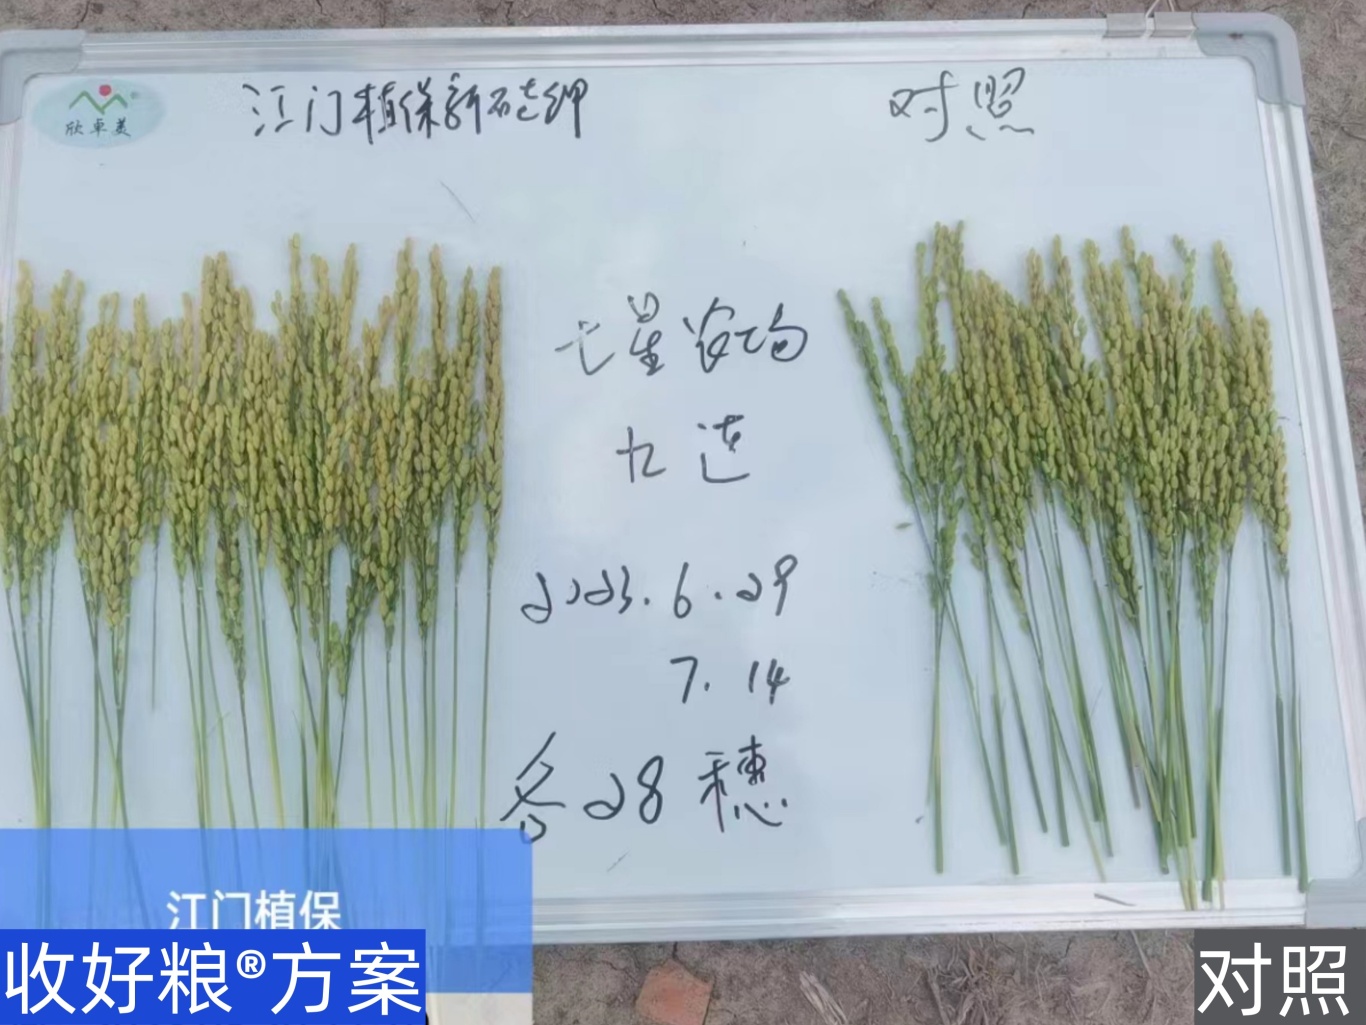 欣卓美®
江门植保新硒钾
对照
七星农场
九连
2023.6.29
7.14
各28穗
江门植保
收好粮®方案
对照